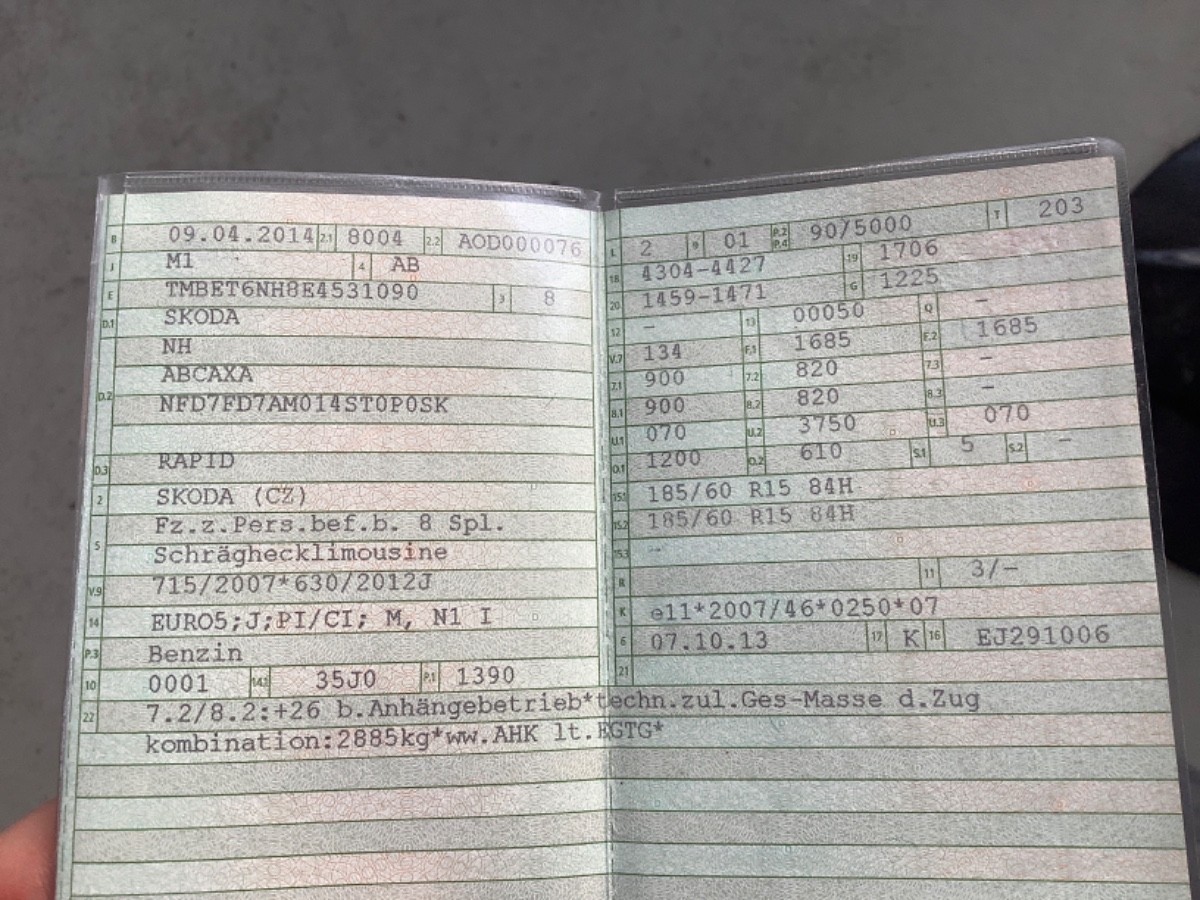 B 09.04.2014 2.1 8004 2.2 AOD000076
J M1 4 AB
E TMBET6NH8E4531090 3 8
D.1 SKODA
NH
D.2 ABCAXA
NFD7FD7AM014ST0P0SK
D.3 RAPID
2 SKODA (CZ)
5 Fz.z.Pers.bef.b. 8 Spl.
Schräghecklimousine
V.9 715/2007*630/2012J
14 EURO5;J;PI/CI; M, N1 I
P.3 Benzin
10 0001 14.1 35J0 P.1 1390
L 2 9 01 P.2 P.4 90/5000 T 203
18 4304-4427 19 1706
20 1459-1471 G 1225
12 – 13 00050 Q –
V.7 134 F.1 1685 F.2 1685
7.1 900 7.2 820 7.3 –
8.1 900 8.2 820 8.3 –
U.1 070 U.2 3750 U.3 070
O.1 1200 O.2 610 S.1 5 S.2 –
15.1 185/60 R15 84H
15.2 185/60 R15 84H
15.3 –
R 11 3/–
K e11*2007/46*0250*07
6 07.10.13 17 K 16 EJ291006
21
22 7.2/8.2:+26 b.Anhängebetrieb*techn.zul.Ges-Masse d.Zug
kombination:2885kg*ww.AHK lt.EGTG*